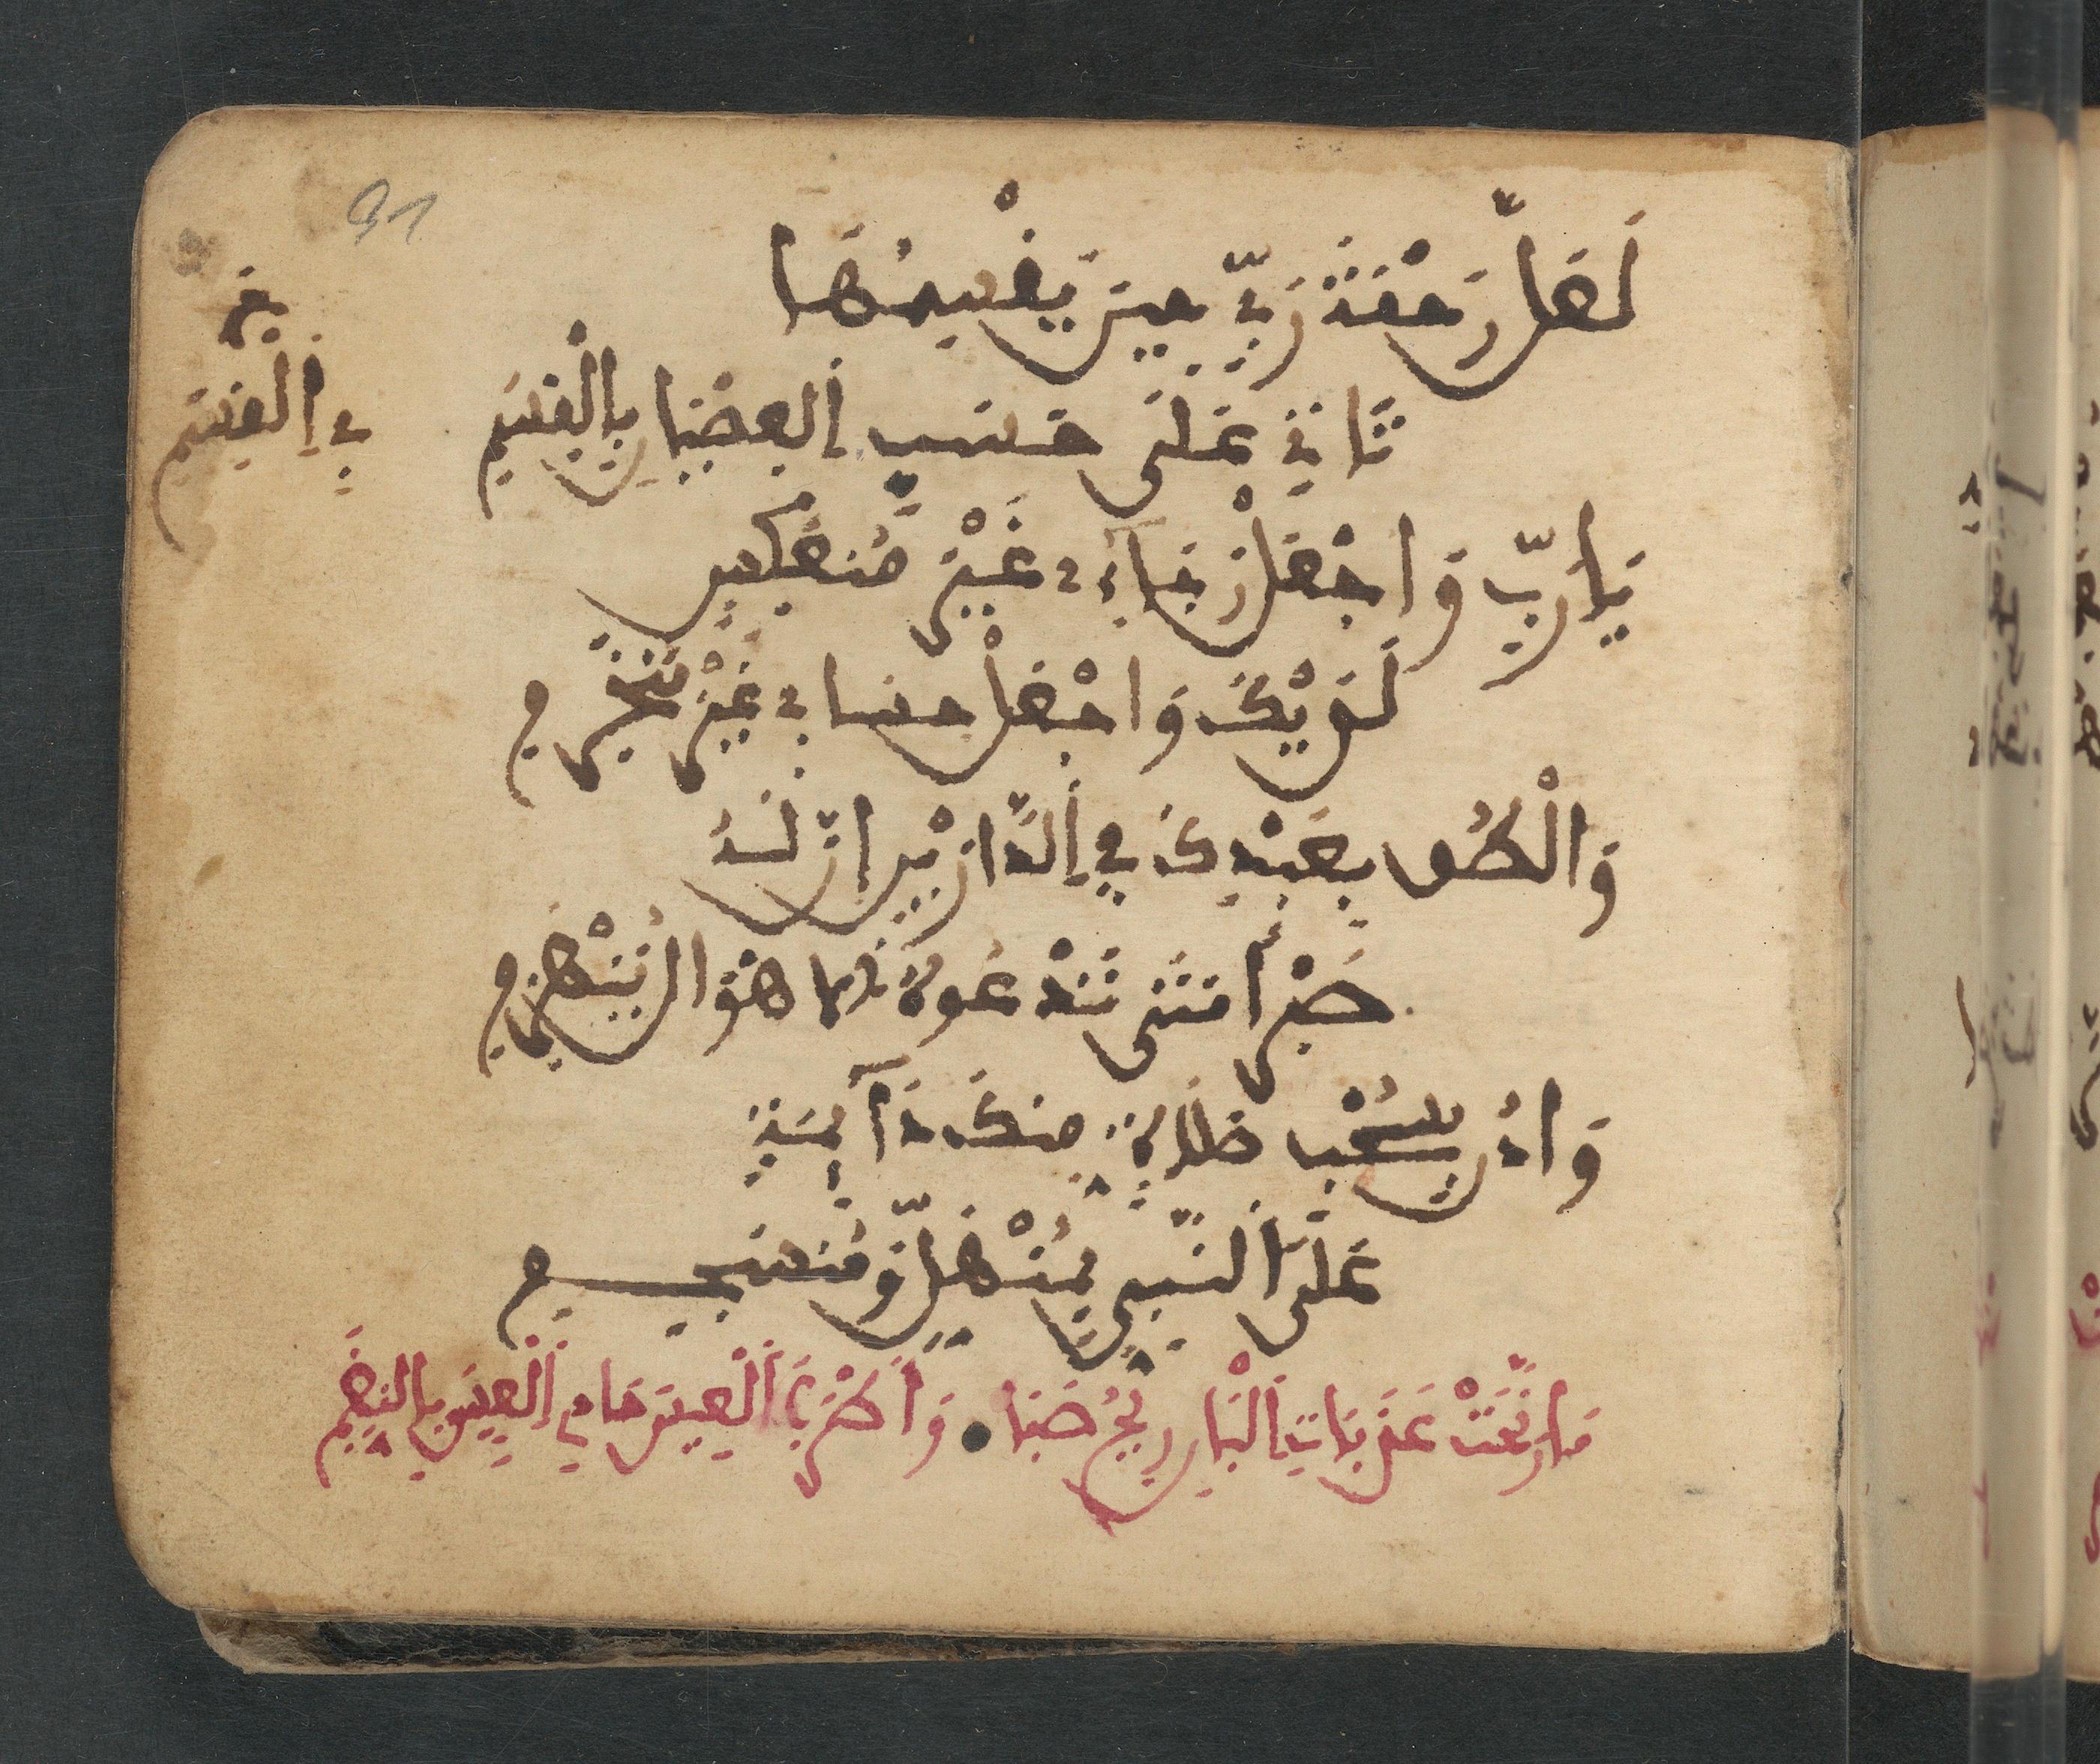 91
لَعَلَّ رَحْمَةَ رَبِّي حِينَ يَقْسِمُهَا
تَأتِي عَلَى حَسَبِ اَلْعِصْيَانِ بِالْقِسَمِ
فِي اَلْقِسَمِ
يَا رَبِّ وَاجْعَلْ رَجَاءِي غَيْرَ مُنْعَكِسٍ
لَدَيْكَ وَاجْعَلْ حِسَابِي غَيْرَ مُنْخَرِمِ
وَالْطُفْ بِعَبْدِكَ فِي اَلدَّارَيْنِ إِنَّ لَهُ
صَبْرًا مَتَى تَدْعُوهُ الاهْوَالُ يَنْهَزِمِ
وَاذَنْ لِسُحْبِ صَلَاةٍ مِنْكَ دَآيِمَةٍ
عَلَى اَلنَّبِيِّ بِمُنْهَلٍّ وَمُنْسَجِمِ
مَا رَنَّحَتْ عَذَبَاتِ اَلْبَانِ رِيحُ صَبَا وَأَطْرَبَ اَلْعِيسَ حَادِي اَلْعِيسِ بِالنَّغَمِ